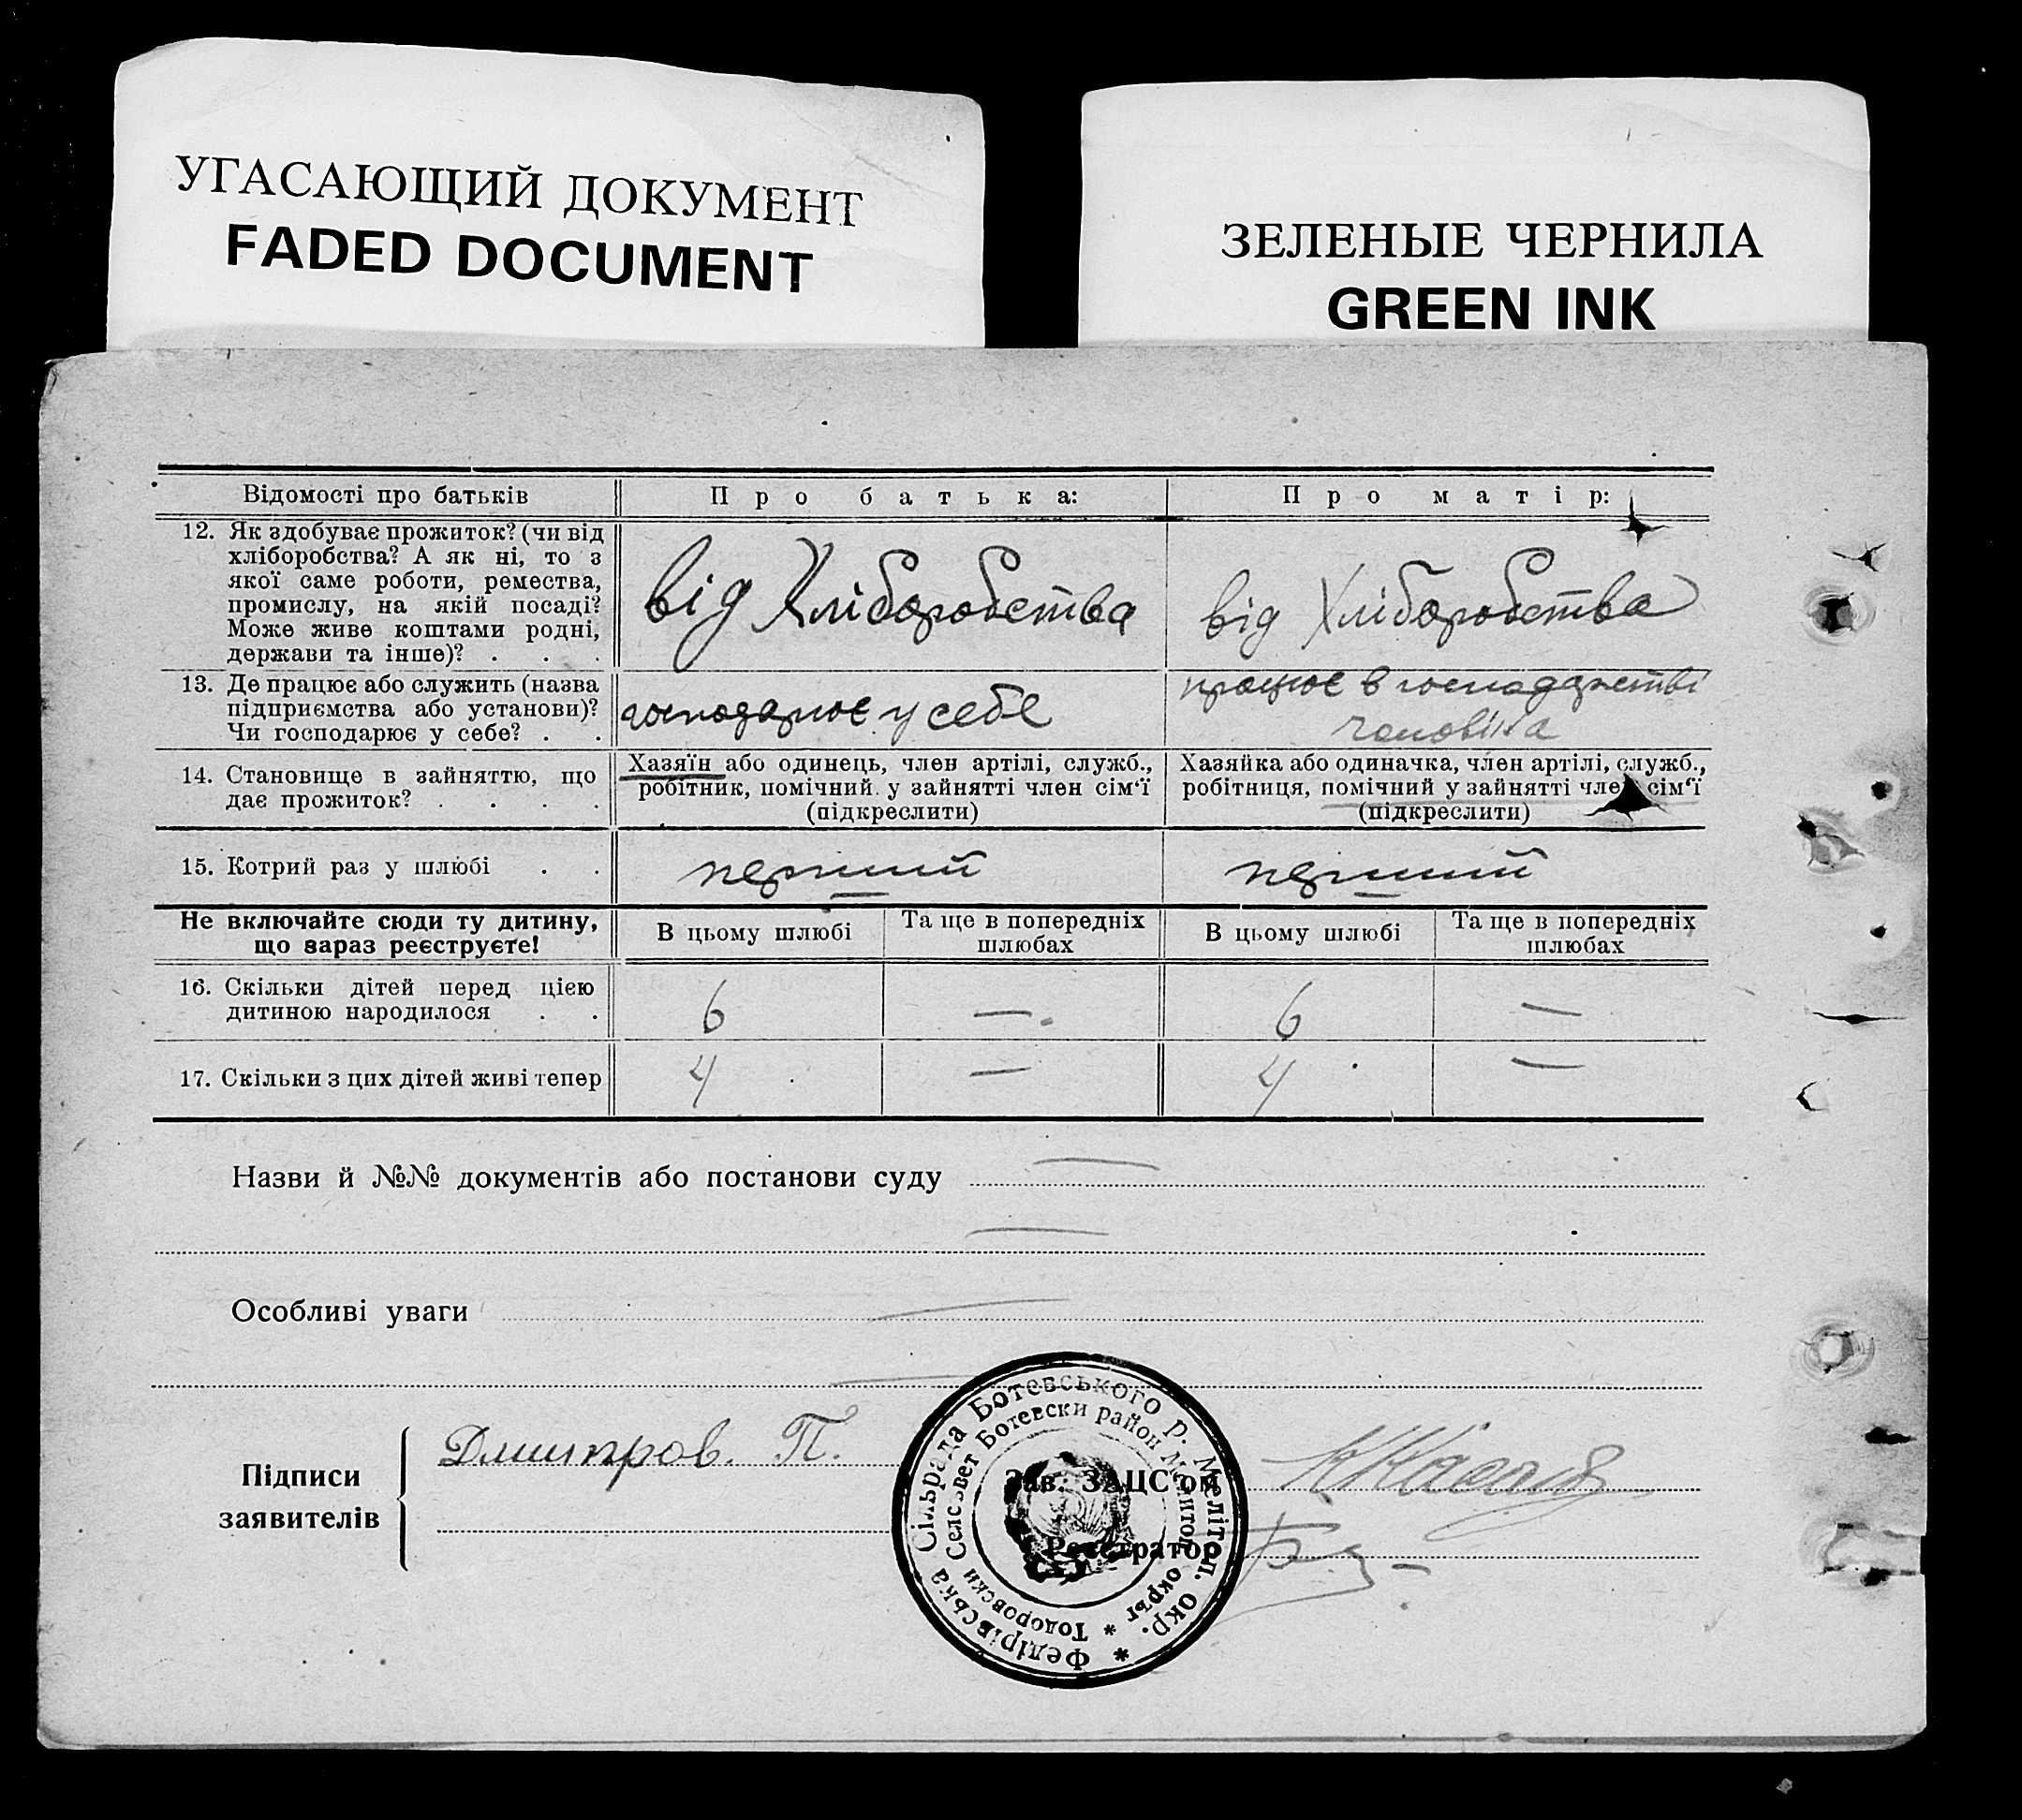 УГАСАЮЩИЙ ДОКУМЕНТ
FADED DOCUMENT
ЗЕЛЕНЫЕ ЧЕРНИЛА
GREEN INK
Відомості про батьків
Про батька:
Про матір:
12. Як здобуває прожиток? (чи від
хліборобства? А як ні, то з
якої саме роботи, ремества,
промислу, на якій посаді?
Може живе коштами родні,
держави та інше)? . . .
від Хліборобства
від Хліборобства
13. Де працює або служить (назва
підприємства або установи)?
Чи господарює у себе? . .
господарює у себе
працює в господарстві
чоловіка
14. Становище в зайняттю, що
дає прожиток? . . . .
Хазяїн або одинець, член артілі, служб.,
робітник, помічний. у зайнятті член сім‘ї
(підкреслити)
Хазяйка або одиначка, член артілі, служб.,
робітниця, помічний у зайнятті член сім‘ї
(підкреслити)
15. Котрий раз у шлюбі . .
перший
перший
Не включайте сюди ту дитину,
що зараз реєструєте!
В цьому шлюбі
Та ще в попередніх
шлюбах
В цьому шлюбі
Та ще в попередніх
шлюбах
16. Скільки дітей перед цією
дитиною народилося . .
6
—
6
—
17. Скільки з цих дітей живі тепер
4
—
4
—
Назви й №№ документів або постанови суду —
—
Особливі уваги —
—
Підписи
заявителів
Дмитров. П.
Зав. ЗАЦС'ом
Реєстратор
Федірівська Сільрада Ботевського р. Меліτοπ. окр. *
Тодоровски Селсъвет Ботевски район Мелитоп. окръг *